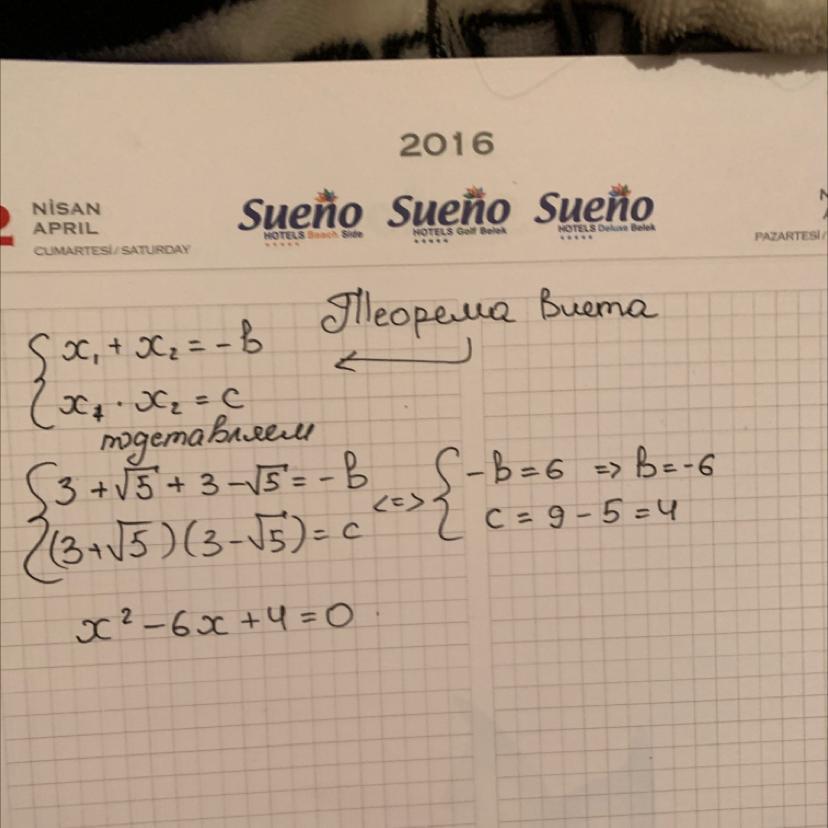 2016
NİSAN
APRIL
CUMARTESİ / SATURDAY
Sueno
HOTELS Beach Side
Sueno
HOTELS Golf Belek
Sueno
HOTELS Deluxe Belek
PAZARTESİ /
Теорема Виета
{ x₁ + x₂ = -b
x₁ · x₂ = c
подставляем
{ 3 + √5 + 3 - √5 = -b <=> { -b = 6 => b = -6
(3+√5)(3-√5) = c c = 9 - 5 = 4
x² - 6x + 4 = 0